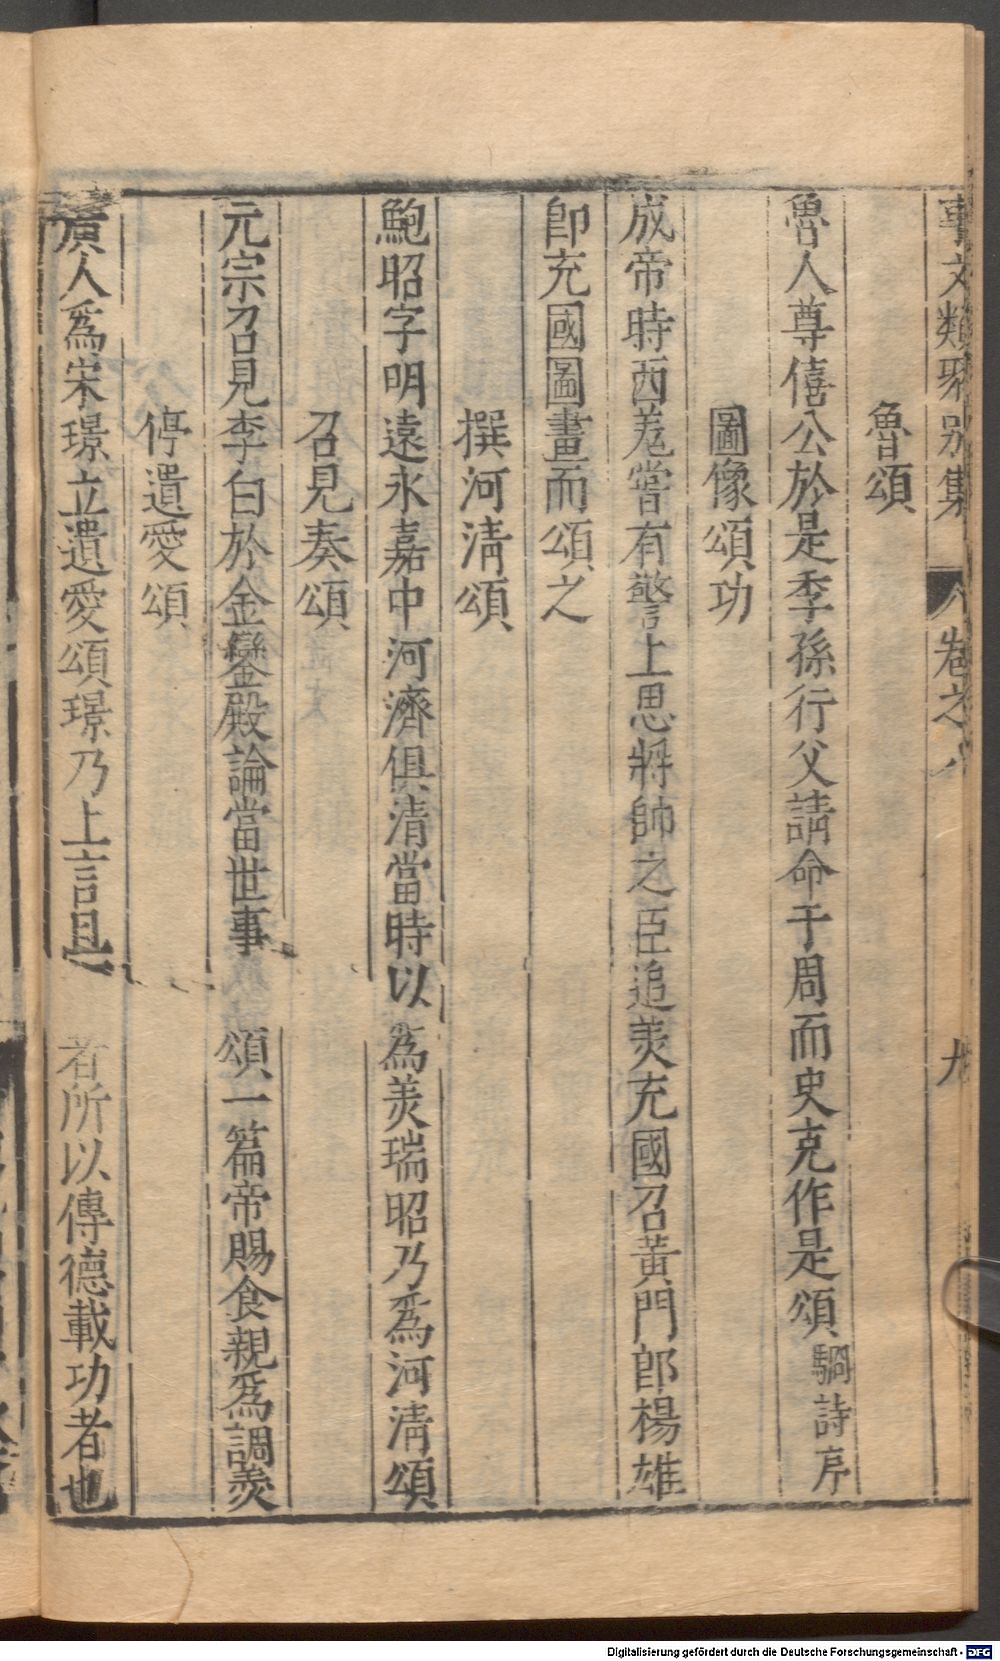 事文類聚別集 卷之八 九
魯頌
魯人尊僖公於是季孫行父請命于周而史克作是頌 駉詩序
圖像頌功
成帝時西羗嘗有警上思將帥之臣追羙充國召黃門郎楊雄
即充國圖畫而頌之
撰河淸頌
鮑昭字明遠永嘉中河濟俱清當時以爲羙瑞昭乃爲河淸頌
召見奏頌
元宗召見李白於金鑾殿論當世事 頌一篇帝賜食親爲調羙
停遺愛頌
廣人爲宋璟立遺愛頌璟乃上言且 者所以傳德載功者也
Digitalisierung gefördert durch die Deutsche Forschungsgemeinschaft - DFG